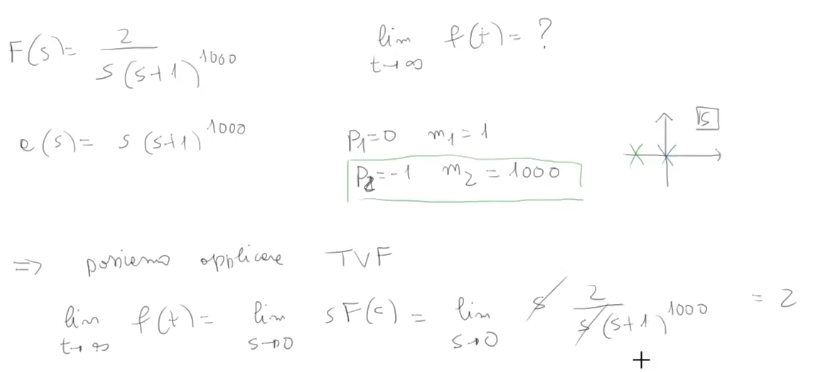 F(s)= 2/(s(s+1)^1000)
lim t→∞ f(t)= ?
e(s)= s(s+1)^1000
P1=0 m1=1
P2=-1 m2=1000
s
=> possiamo applicare TVF
lim t→∞ f(t)= lim s→0 sF(s)= lim s→0 s 2/(s(s+1)^1000) = 2